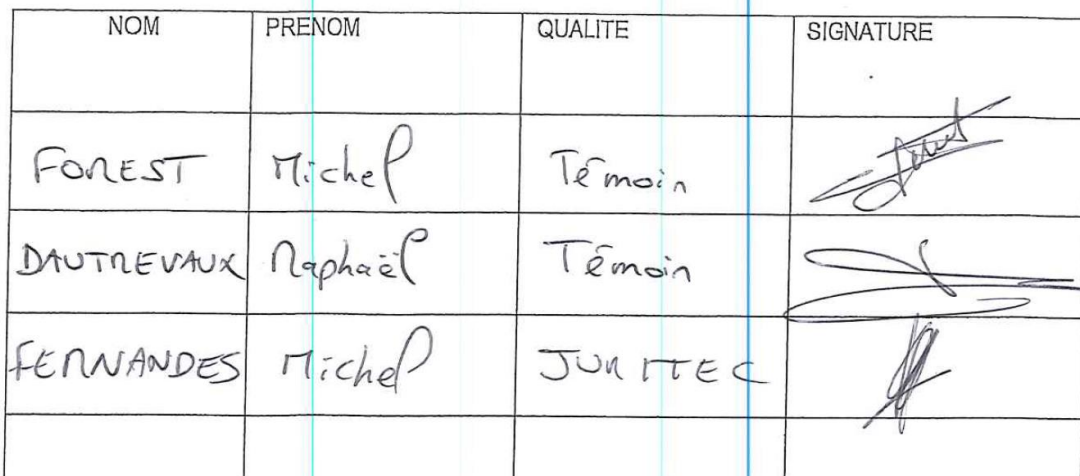 NOM PRENOM QUALITE SIGNATURE
FOREST Michel Témoin
DAUTREVAUX Raphaël Témoin
FERNANDES Michel JURITEC